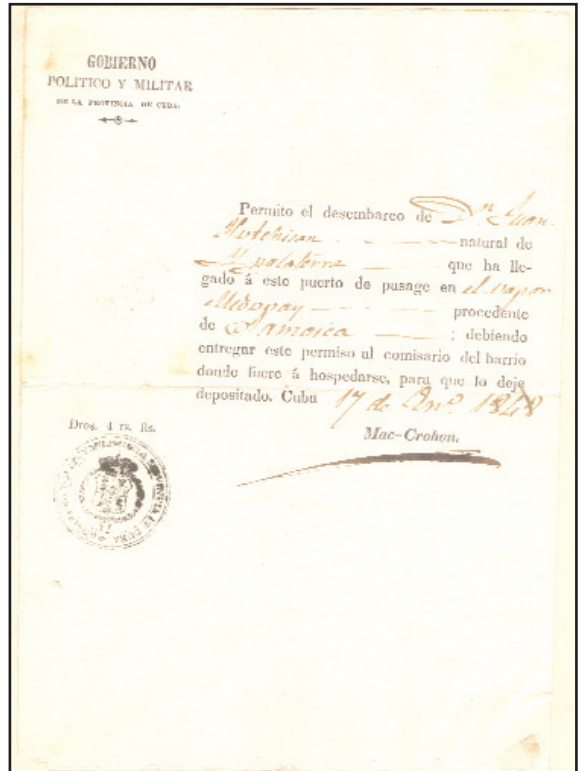 GOBIERNO
POLITICO Y MILITAR
DE LA PROVINCIA DE CUBA.
Permito el desembarco de Dn. Juan
Hotchison natural de
Ynglaterra que ha lle-
gado á este puerto de pasage en el vapor
procedente
de Jamaica ; debiendo
entregar este permiso al comisario del barrio
donde fuere á hospedarse, para que lo deje
depositado. Cuba 17 de Eno. 1848
Mac-Crohon.
Dros. 4 rs. fts.